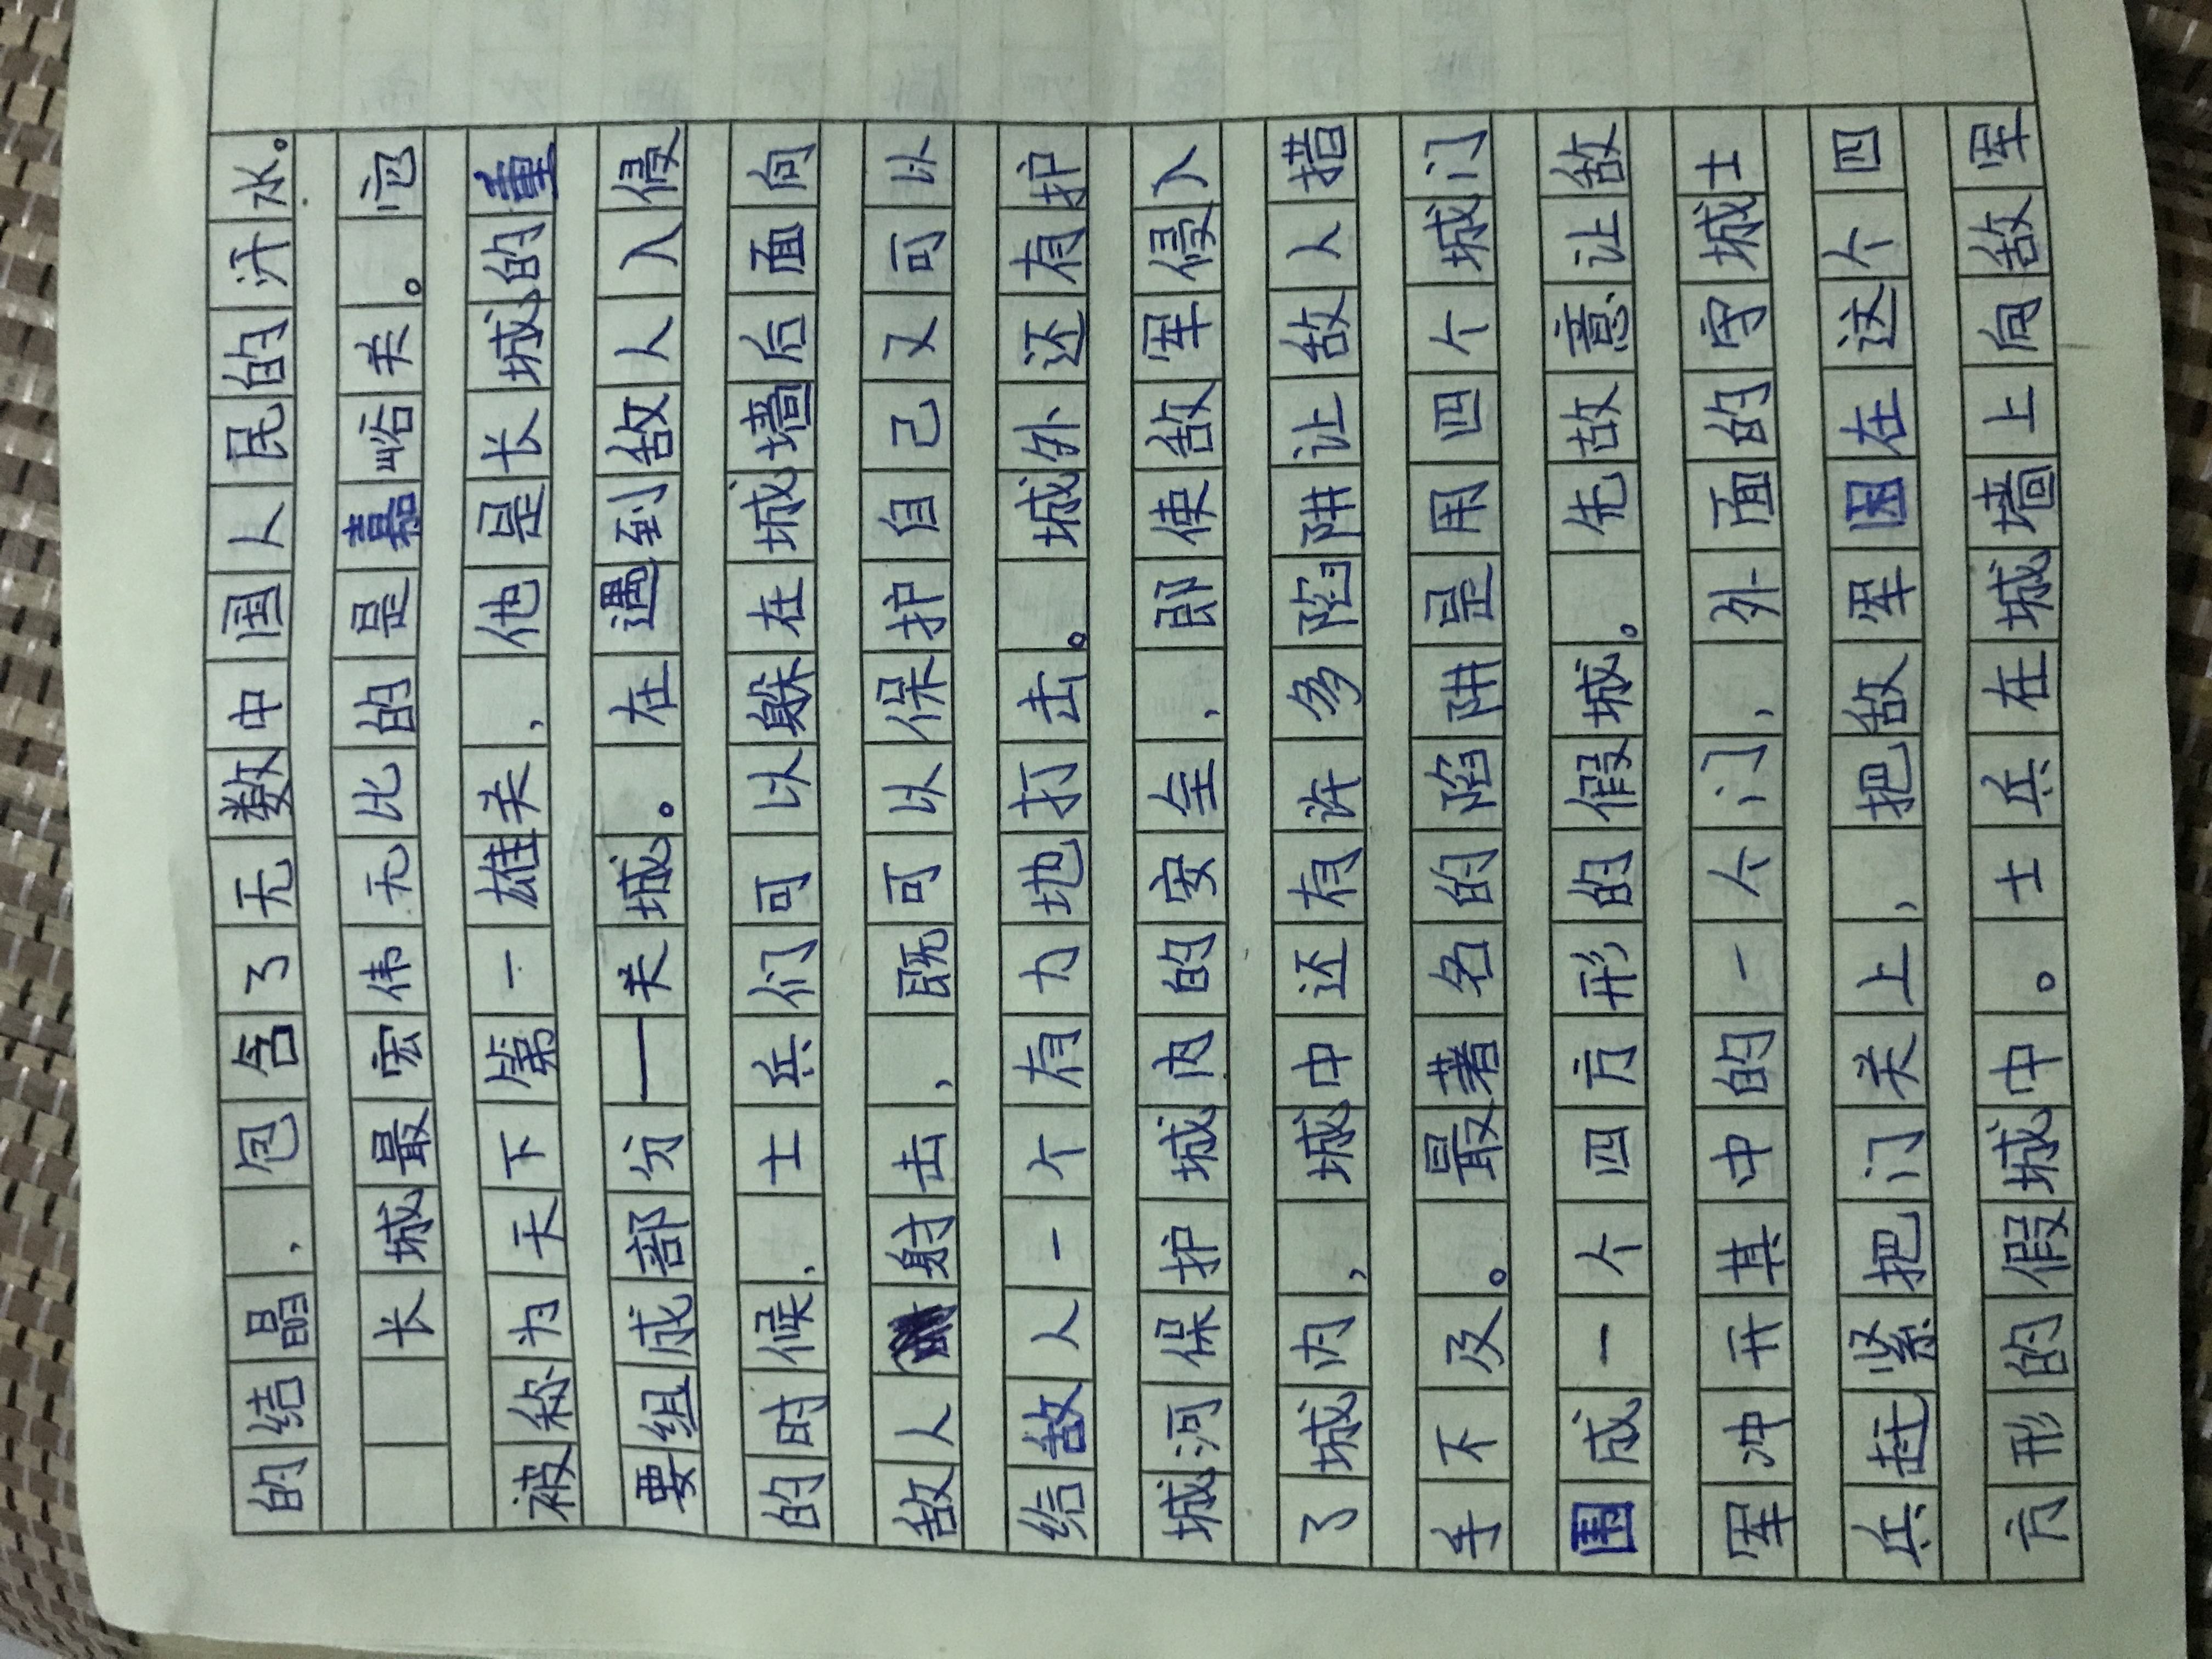 的结晶，包含了无数中国人民的汗水。
长城最宏伟无比的是嘉峪关。它
被称为天下第一雄关，他是长城的重
要组成部分——关城。在遇到敌人入侵
的时候，士兵们可以躲在城墙后面向
敌人射击，既可以保护自己又可以
给敌人一个有力地打击。城外还有护
城河保护城内的安全，即使敌军侵入
了城内，城中还有许多陷阱让敌人措
手不及。最著名的陷阱是用四个城门
围成一个四方形的假城。先故意让敌
军冲开其中的一个门，外面的守城士
兵赶紧把门关上，把敌军困在这个四
方形的假城中。士兵在城墙上向敌军